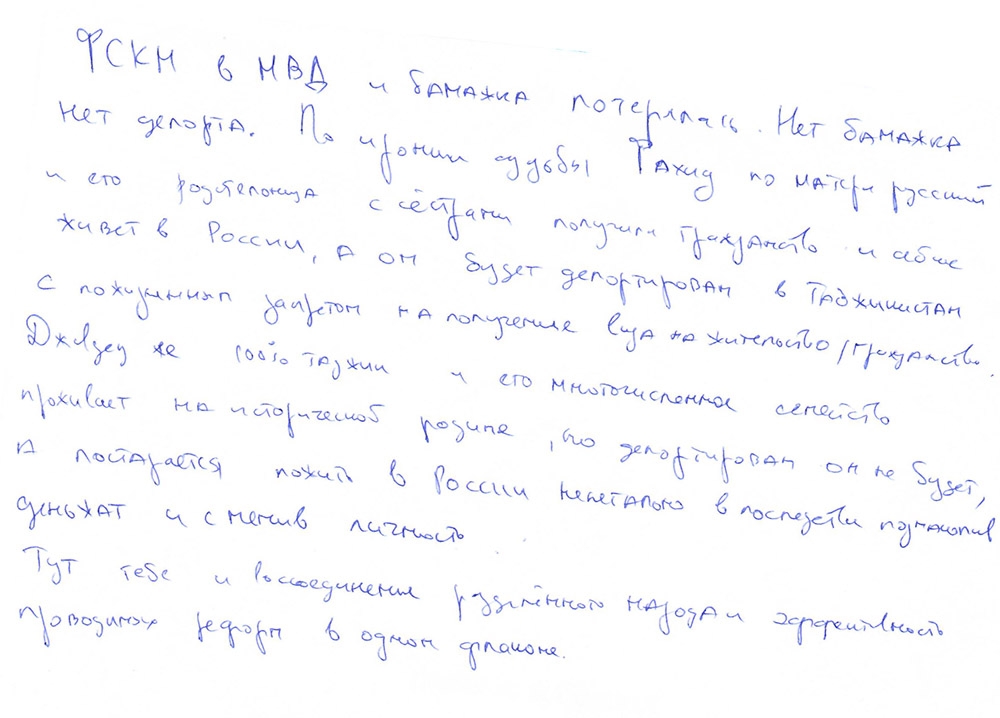 ФСКН в МВД и бамажка потерялась. Нет бамажка
нет депорта. По иронии судьбы Фахид по матери русский
и его родительница с сёстрами получили гражданство и
живет в России, а он будет депортирован в Таджикистан
с пожизненным запретом на получение вида на жительство/гражданство.
же 100% таджик и его многочисленное семейство
проживает на исторической родине, но депортирован он не будет,
а постарается пожить в России нелегально в последствии поднакопив
деньжат и сменив личность.
Тут тебе и воссоединение разделённого народа и эффективность
проводимых реформ в одном флаконе.